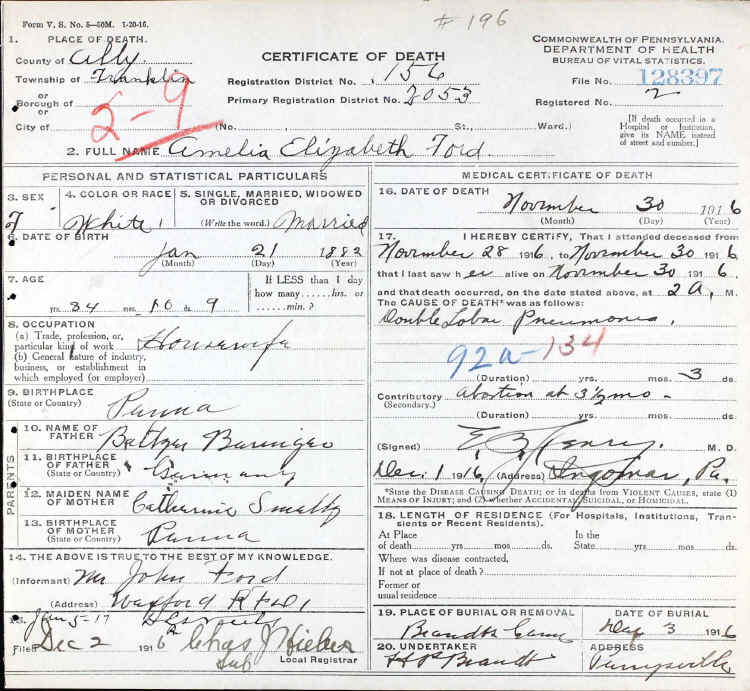 Form V. S. No. 5—50M. 1-20-16.
# 196
1. PLACE OF DEATH.
County of Ally
Township of Franklin
or
Borough of
or
City of
5-9
CERTIFICATE OF DEATH
Registration District No. 156
Primary Registration District No. 2053
(No. , St., Ward.)
COMMONWEALTH OF PENNSYLVANIA.
DEPARTMENT OF HEALTH
BUREAU OF VITAL STATISTICS.
File No. 128397
Registered No. 2
[If death occurred in a
Hospital or Institution,
give its NAME instead
of street and number.]
2. FULL NAME Amelia Elizabeth Ford.
PERSONAL AND STATISTICAL PARTICULARS
3. SEX
F
4. COLOR OR RACE
White
5. SINGLE, MARRIED, WIDOWED
OR DIVORCED
(Write the word.) Married
6. DATE OF BIRTH
Jan 21 1882
(Month) (Day) (Year)
7. AGE
yrs. 34 mos. 10 ds. 9
If LESS than 1 day
how many......hrs. or
......min.?
8. OCCUPATION
(a) Trade, profession, or,
particular kind of work Housewife
(b) General nature of industry,
business, or establishment in
which employed (or employer)
9. BIRTHPLACE
(State or Country) Penna
PARENTS
10. NAME OF
FATHER
11. BIRTHPLACE
OF FATHER
(State or Country) Germany
12. MAIDEN NAME
OF MOTHER Catherine
13. BIRTHPLACE
OF MOTHER
(State or Country) Penna
14. THE ABOVE IS TRUE TO THE BEST OF MY KNOWLEDGE.
(Informant) Mr John Ford
(Address) Wexford
15. Jan 5-17
Filed Dec 2 1916 Chas J Hieber
Sub Local Registrar
MEDICAL CERTIFICATE OF DEATH
16. DATE OF DEATH
November 30 1916
(Month) (Day) (Year)
17. I HEREBY CERTIFY, That I attended deceased from
November 28 1916, to November 30 1916
that I last saw her alive on November 30 1916,
and that death occurred, on the date stated above, at 2 A. M.
The CAUSE OF DEATH* was as follows:
Double Lobar Pneumonia.
92a-134
(Duration) yrs. mos. 3 ds.
Contributory abortion at 3½ mo-
(Secondary.)
(Duration) yrs. mos. ds.
(Signed) Henry. M. D.
Dec. 1 1916, (Address) Ingomar, Pa.
*State the DISEASE CAUSING DEATH; or in deaths from VIOLENT CAUSES, state (1)
MEANS OF INJURY; and (2) whether ACCIDENTAL, SUICIDAL, or HOMICIDAL.
18. LENGTH OF RESIDENCE (For Hospitals, Institutions, Tran-
sients or Recent Residents).
At Place
of death yrs. mos. ds.
In the
State yrs. mos. ds.
Where was disease contracted,
If not at place of death?
Former or
usual residence
19. PLACE OF BURIAL OR REMOVAL
Brandts Cem
DATE OF BURIAL
Dec 3 1916
20. UNDERTAKER
Brandt
ADDRESS
Perrysville